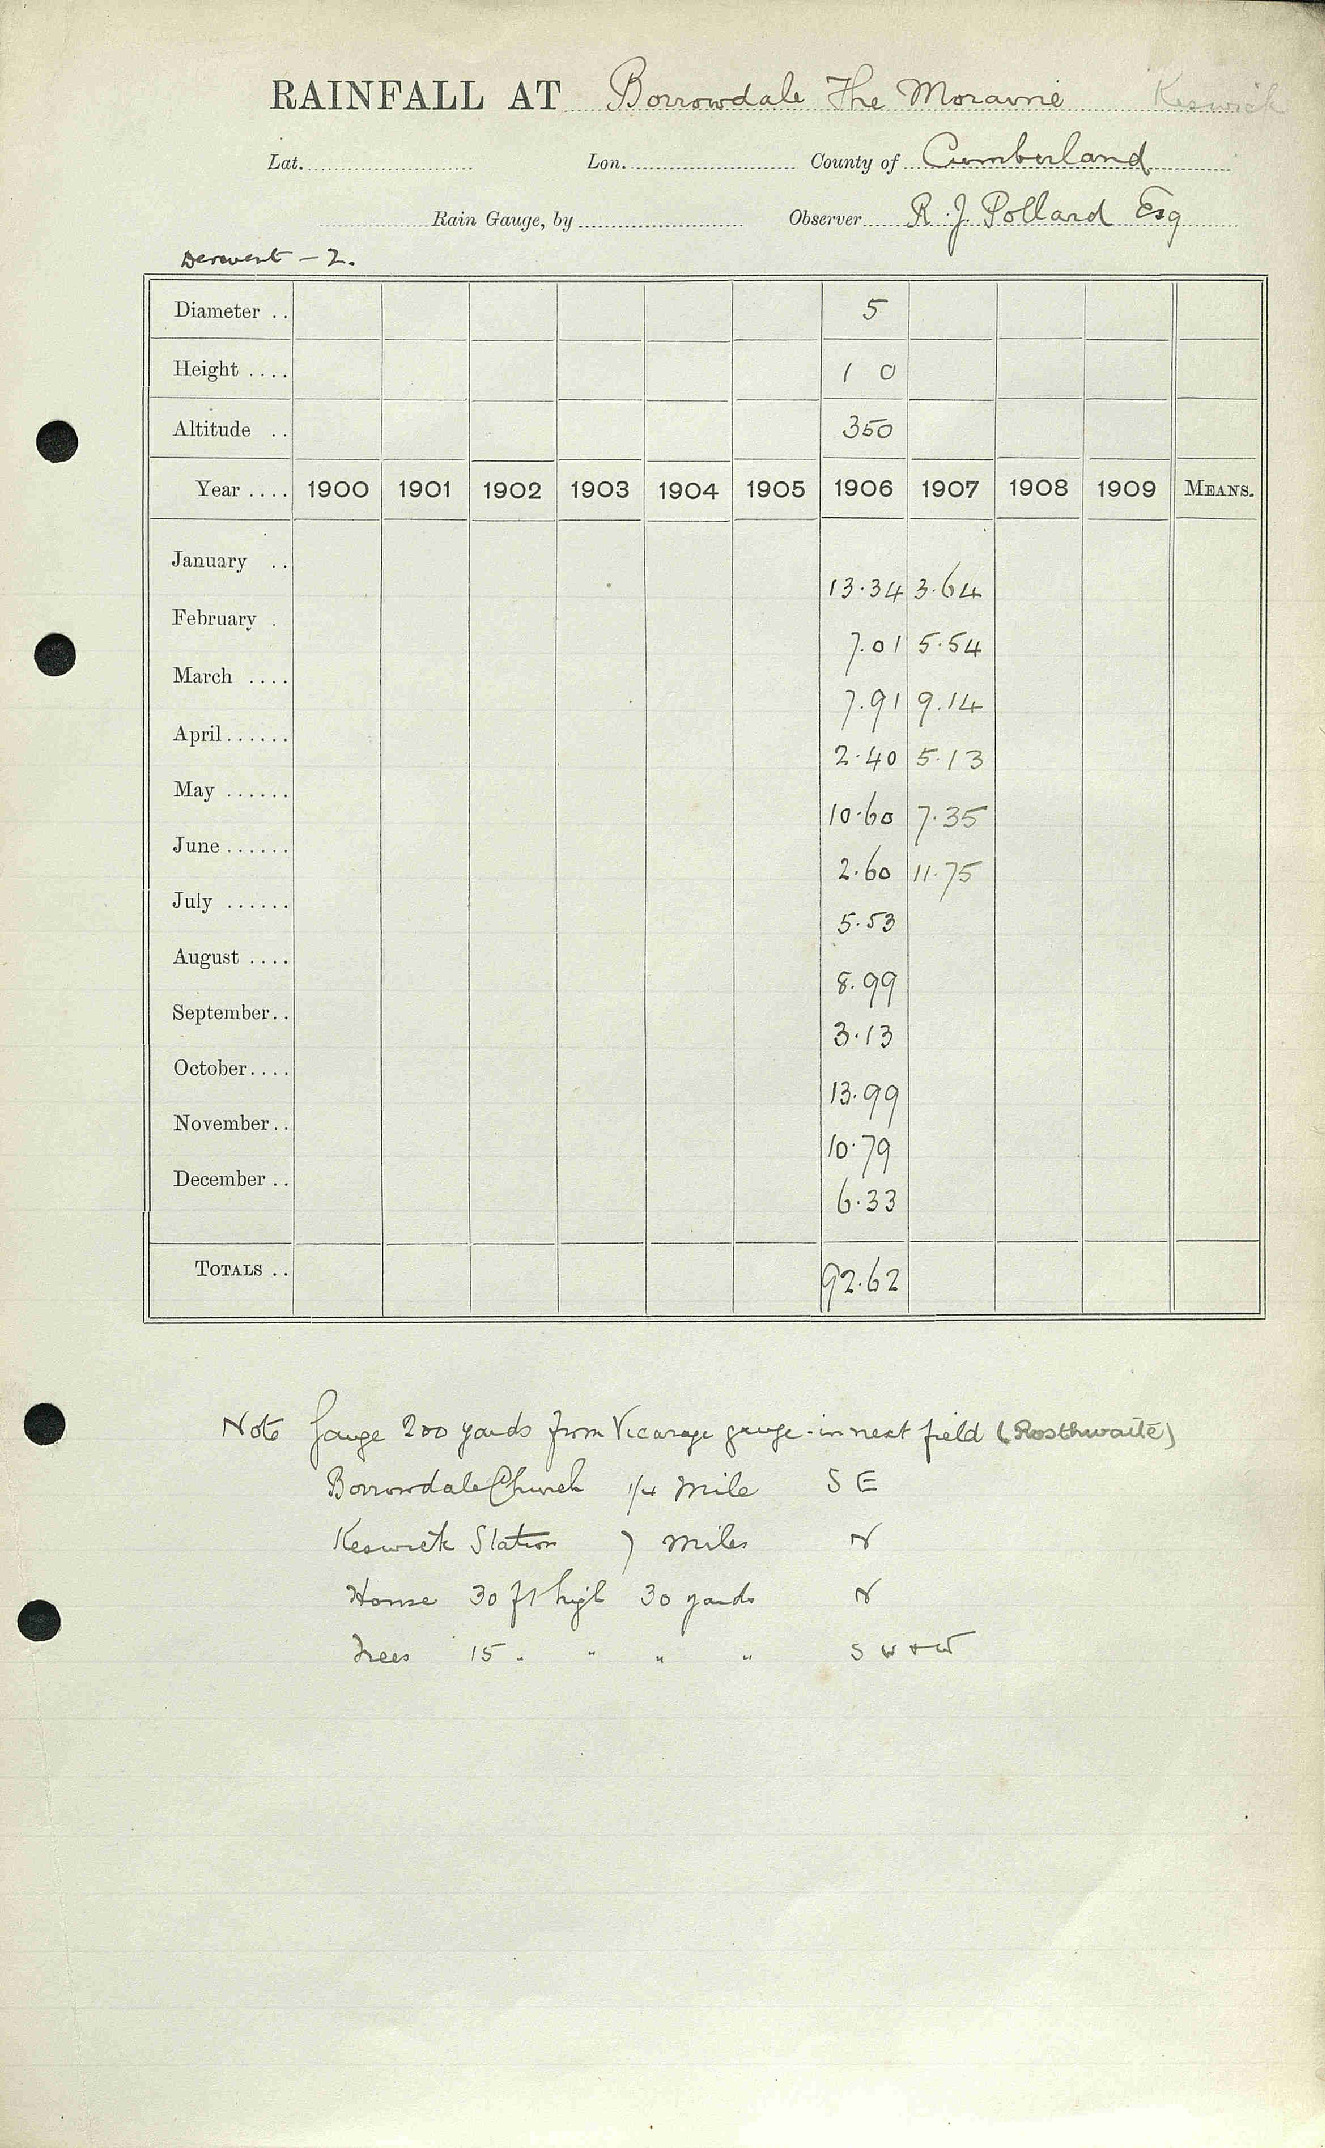 RAINFALL AT Borrowdale The Moraine Keswick
Lat. Lon. County of Cumberland
Rain Gauge, by Observer R. J. Pollard Esq
Derwent - 2.
Diameter .. 5
Height .... 1 0
Altitude .. 350
Year .... 1900 1901 1902 1903 1904 1905 1906 1907 1908 1909 MEANS.
January .. 13.34 3.64
February . 7.01 5.54
March .... 7.91 9.14
April...... 2.40 5.13
May ...... 10.60 7.35
June ...... 2.60 11.75
July ...... 5.53
August .... 8.99
September.. 3.13
October.... 13.99
November.. 10.79
December .. 6.33
TOTALS .. 92.62
Note Gauge 200 yards from Vicarage gauge - in next field (Rosthwaite)
Borrowdale Church 1/4 mile S E
Keswick Station 7 miles N
House 30 ft high 30 yards N
Trees 15 " " " " S W + W